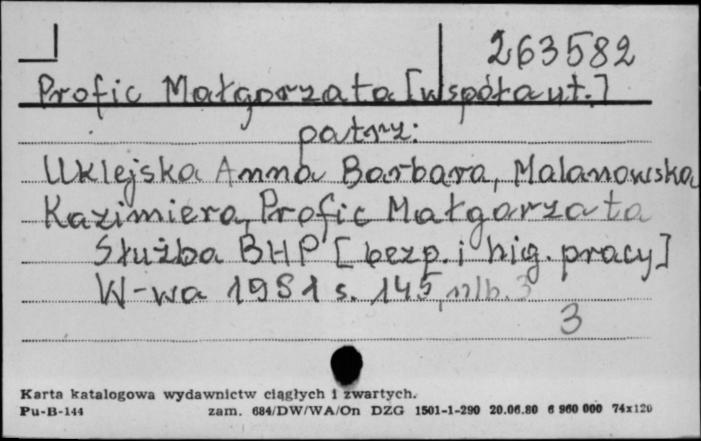 263582
Profic Małgorzata [współaut.]
patrz:
Uklejska Anna Barbara, Malanowska
Kazimiera, Profic Małgorzata
Służba BHP [bezp. i hig. pracy]
W-wa 1981 s. 145, nlb. 3
3
Karta katalogowa wydawnictw ciągłych i zwartych.
Pu-B-144 zam. 684/DW/WA/On DZG 1501-1-290 20.06.80 6 960 000 74x120